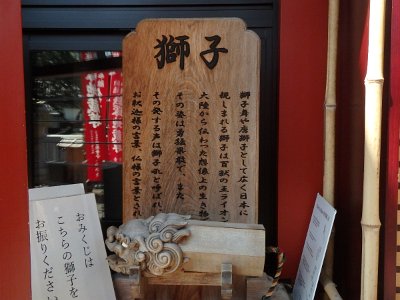 獅子
獅子舞や唐獅子として広く日本に
親しまれる獅子は百獣の王ライオ
大陸から伝わった想像上の生き物
その姿は勇猛果敢で、また、
その発する声は獅子吼と呼ばれ
お釈迦様の言葉、仏様の言葉とされ
おみくじは
こちらの獅子を
お振りください